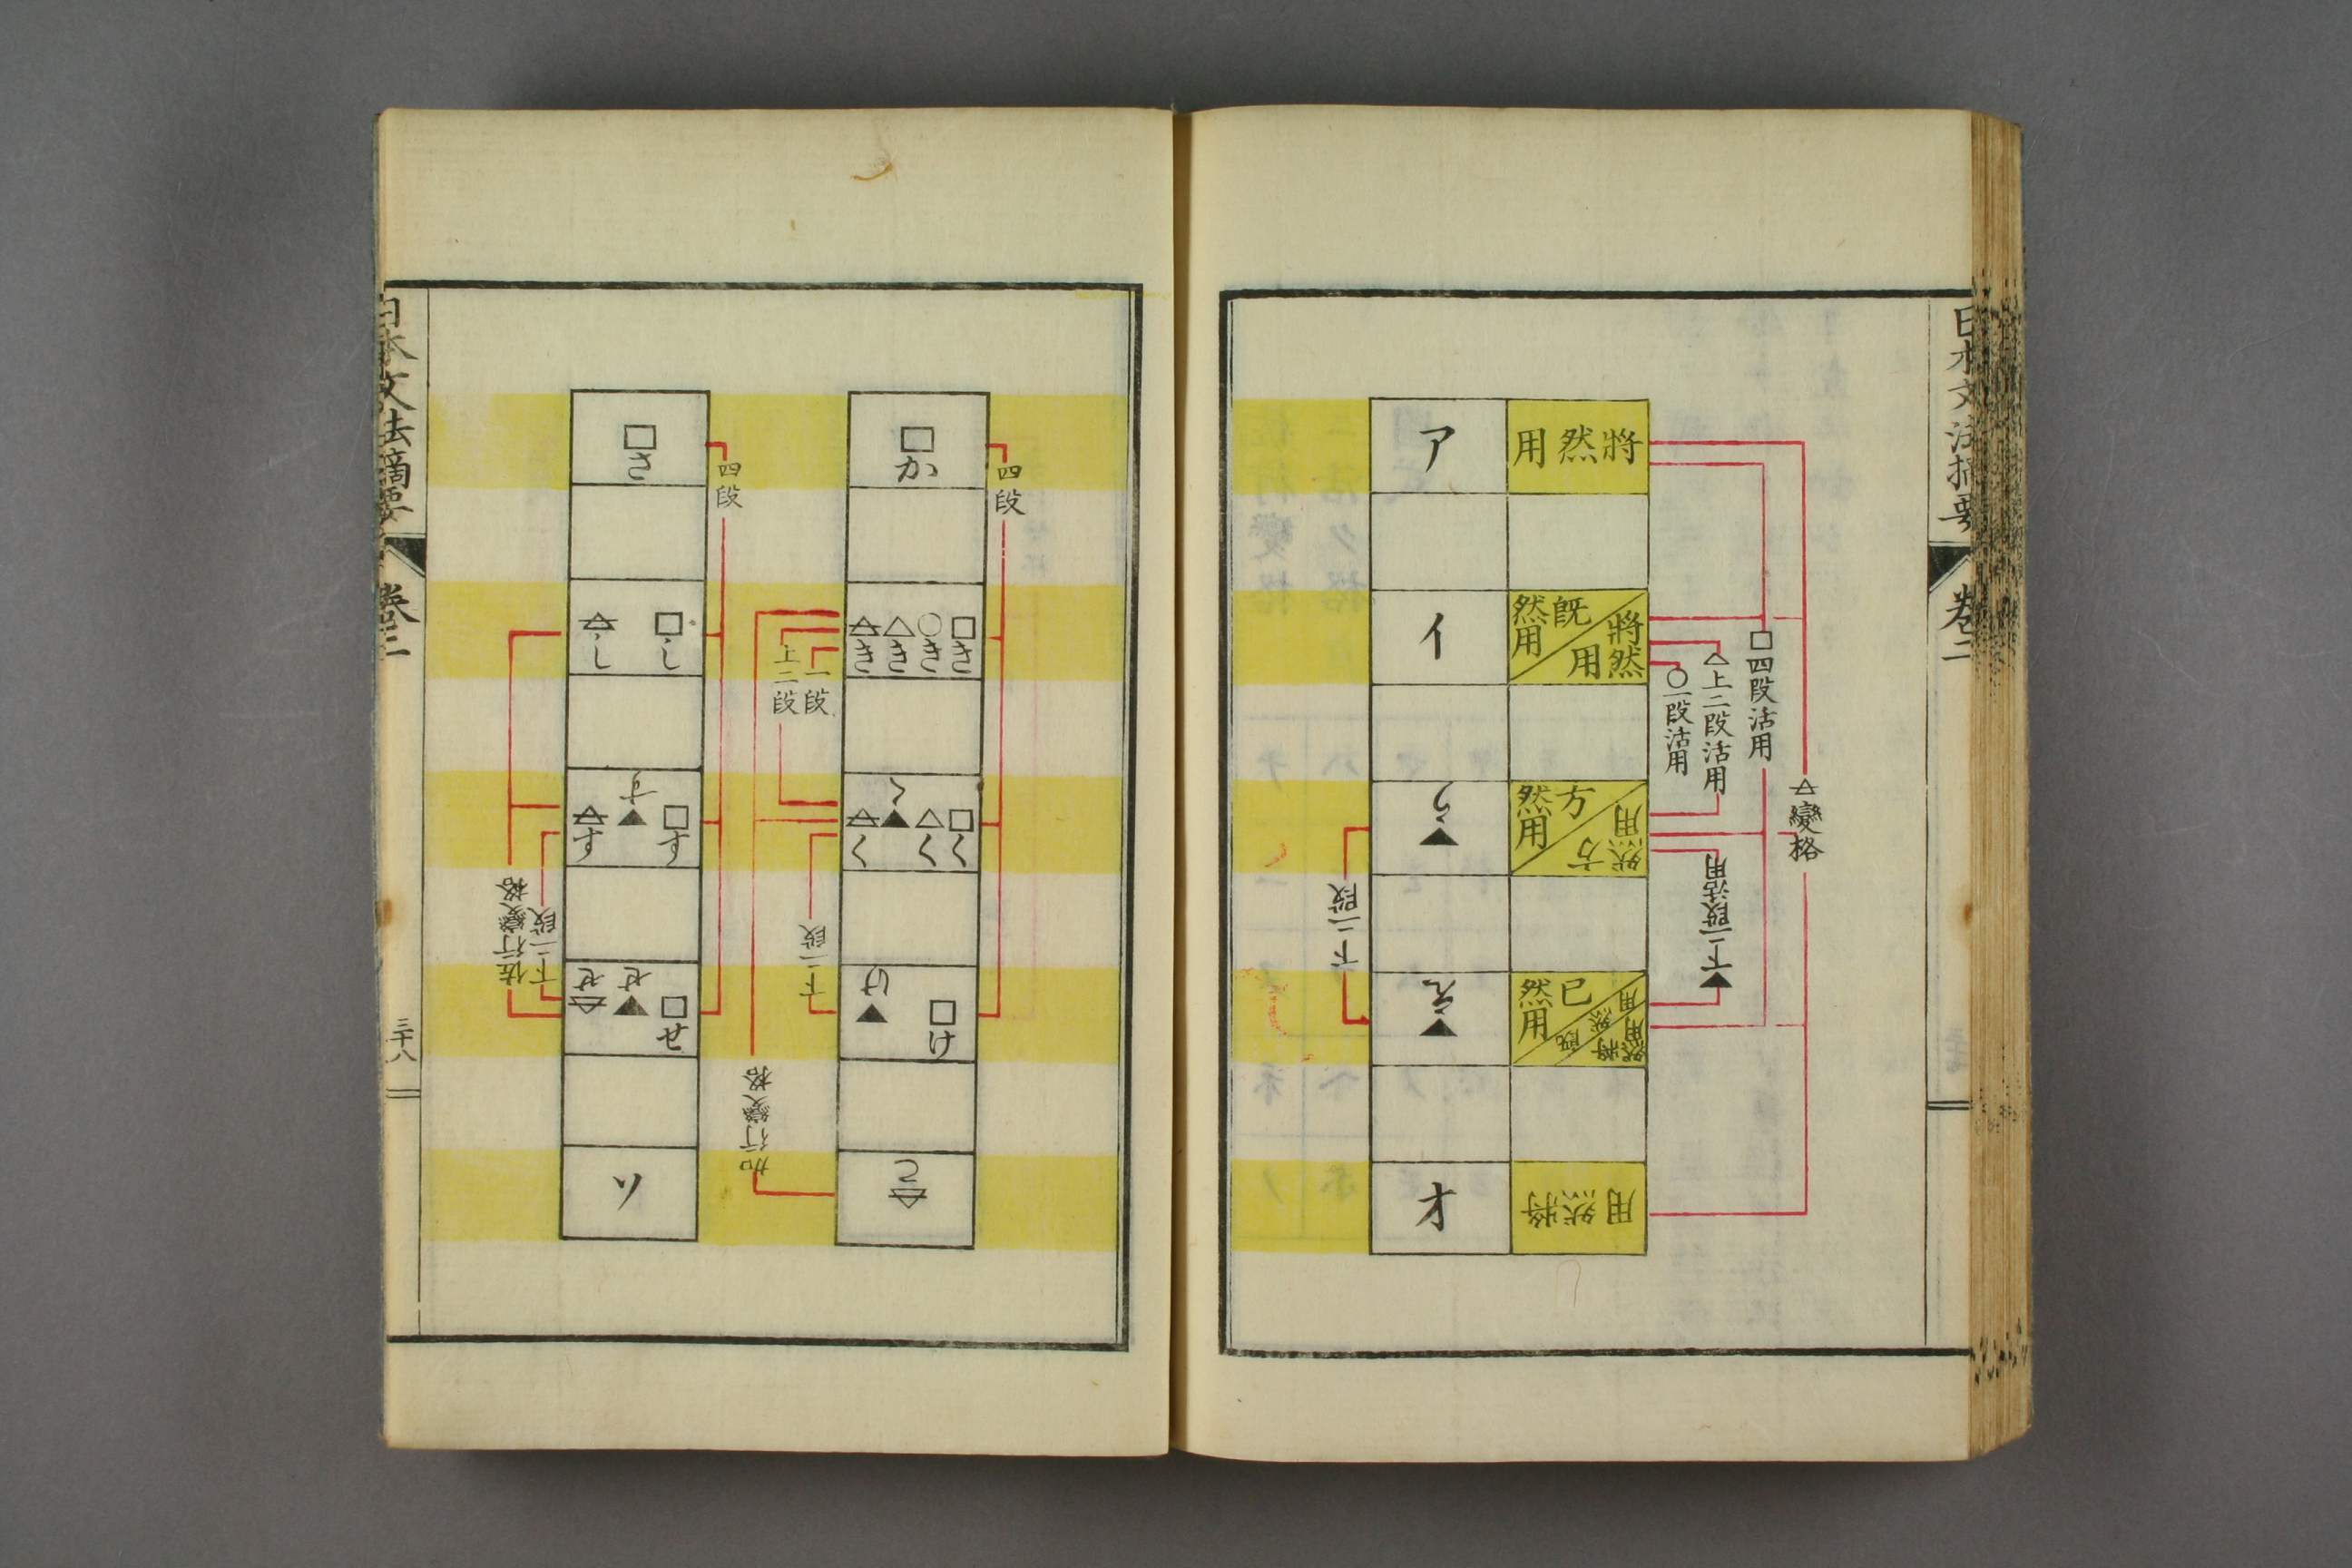 日本文法摘要
卷二
變格
四段活用
上二段活用
一段活用
下二段活用
將然用
將然用
既然用
方然用
方然用
已然用
將然用
ア
イ
う
え
オ
下二段
四段
か
き き き き
く く く く
け け
こ
一段
上二段
下二段
加行變格
四段
さ
し し
す す す
せ せ せ
ソ
下二段
佐行變格
日本文法摘要
卷二
三十八